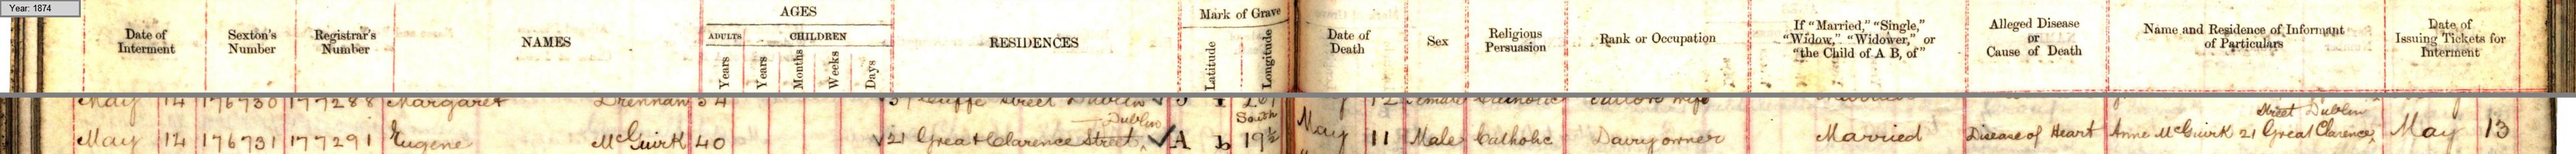 Year: 1874
Date of Interment Sexton's Number Registrar's Number NAMES AGES ADULTS Years CHILDREN Years Months Weeks Days RESIDENCES Mark of Grave Latitude Longitude Date of Death Sex Religious Persuasion Rank or Occupation If "Married," "Single," "Widow," "Widower," or "the Child of A B, of" Alleged Disease or Cause of Death Name and Residence of Informant of Particulars Date of Issuing Tickets for Interment
May 14 176730 177288 Margaret Drennan 54 Cuffe Street Dublin 12 Female Catholic wife
May 14 176731 177291 Eugene McGuirk 40 21 Great Clarence Street, Dublin A b 19½ South May 11 Male Catholic Dairy owner Married Disease of Heart Anne McGuirk 21 Great Clarence Street Dublin May 13